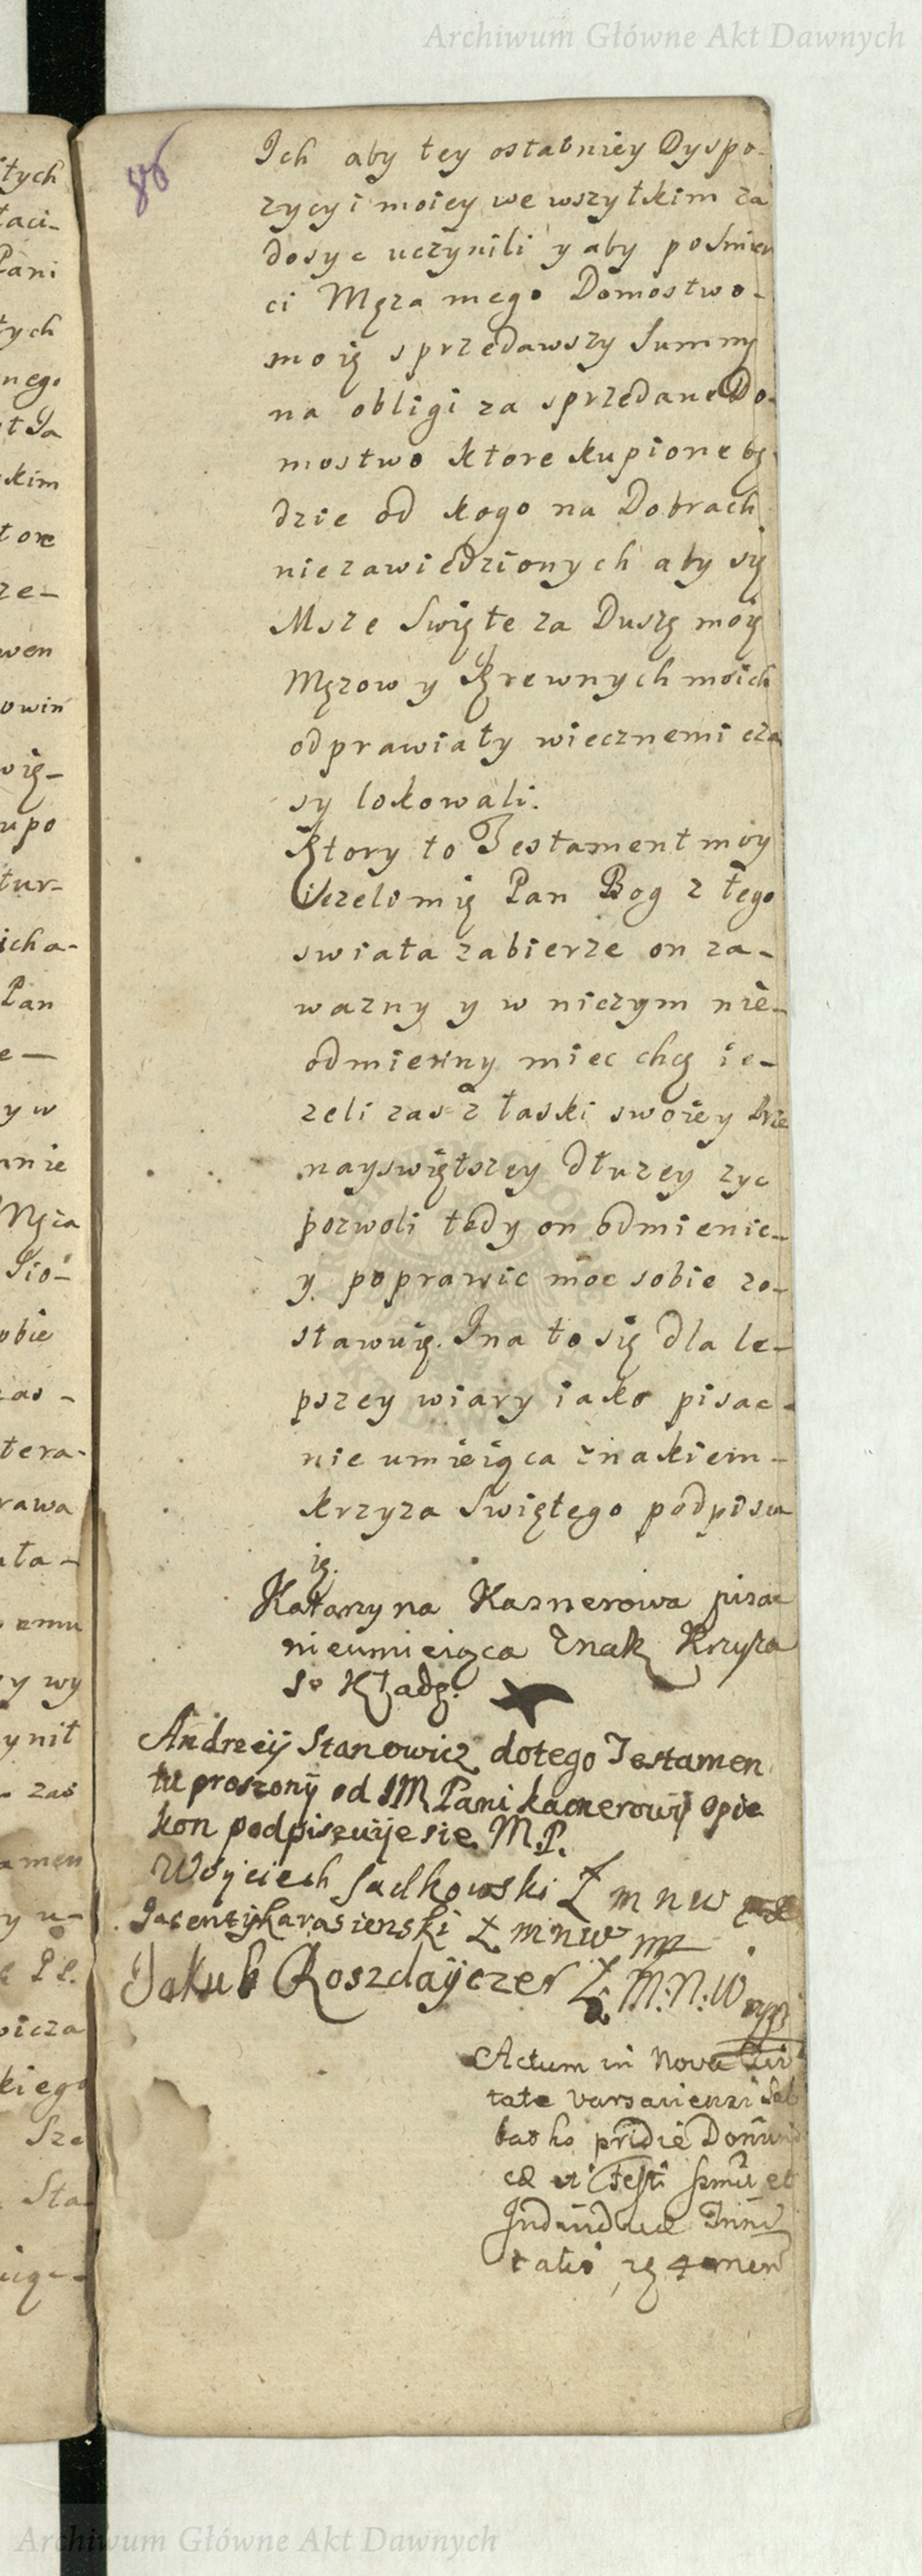 Archiwum Główne Akt Dawnych
86
Ich aby tey ostatniey Dyspo-
zycyi moiey we wszytkim za
dosyc uczynili y aby po Smier
ci Męza mego Domostwo-
moię sprzedawszy Summy
na obligi za sprzedane Do-
mostwo ktore kupione bę
dzie od kogo na Dobrach
niezawiedzionych aby się
Msze Swięte za Duszę moię
Męzow y Krewnych moich
odprawiały wiecznemi cza
sy lokowali.
Ktory to Testament moy
Iezeli mię Pan Bog z tego
swiata zabierze on za-
wazny y w niczym nie-
odmienny miec chcę ie-
zeli zas z łaski swoiey
nayswiętszey dłuzey zyc
pozwoli tedy on odmienic-
y poprawic moc sobie zo-
stawuię. I na to się dla le-
pszey wiary iako pisac-
nie umieiąca znakiem-
krzyza Swiętego podpisu
ię.
Katarzyna Kasnerowa pisac
nieumieiąca Znak Krzyza
S° Kładę.
Andrzeÿ Stanowicz dotego Testamen
tu proszonÿ od JM Pani kasnerowÿ opie
kon podpisuije sie M.P.
Woyciech Sadkowski Ł m n w
Jacenty Karasienski Ł m n w mp
Jakub Roszdaÿczer Ł. M. N. W mp
Actum in Nova Civi
tate Varsaviensi Sab
batho pridie Domini
cæ Festi Ssmæ et
Individuæ Trini
tatis
Archiwum Główne Akt Dawnych